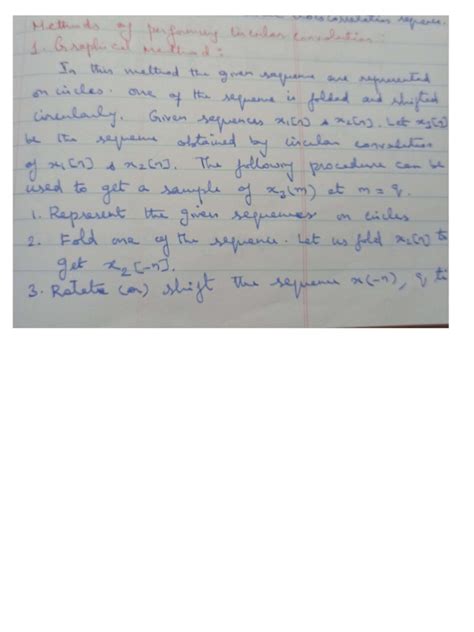 crosscorrelation sequence.
Methods of performing circular convolution:
1. Graphical Method:
In this method the given sequence are represented
on circles. one of the sequence is folded and shifted
circularly. Given sequences x1[n] & x2[n]. Let x3[n]
be the sequence obtained by circular convolution
of x1[n] & x2[n]. The following procedure can be
used to get a sample of x3(m) at m = q.
1. Represent the given sequences on circles
2. Fold one of the sequence. Let us fold x2[n] to
get x2[-n].
3. Rotate (or) shift the sequence x(-n), q ti